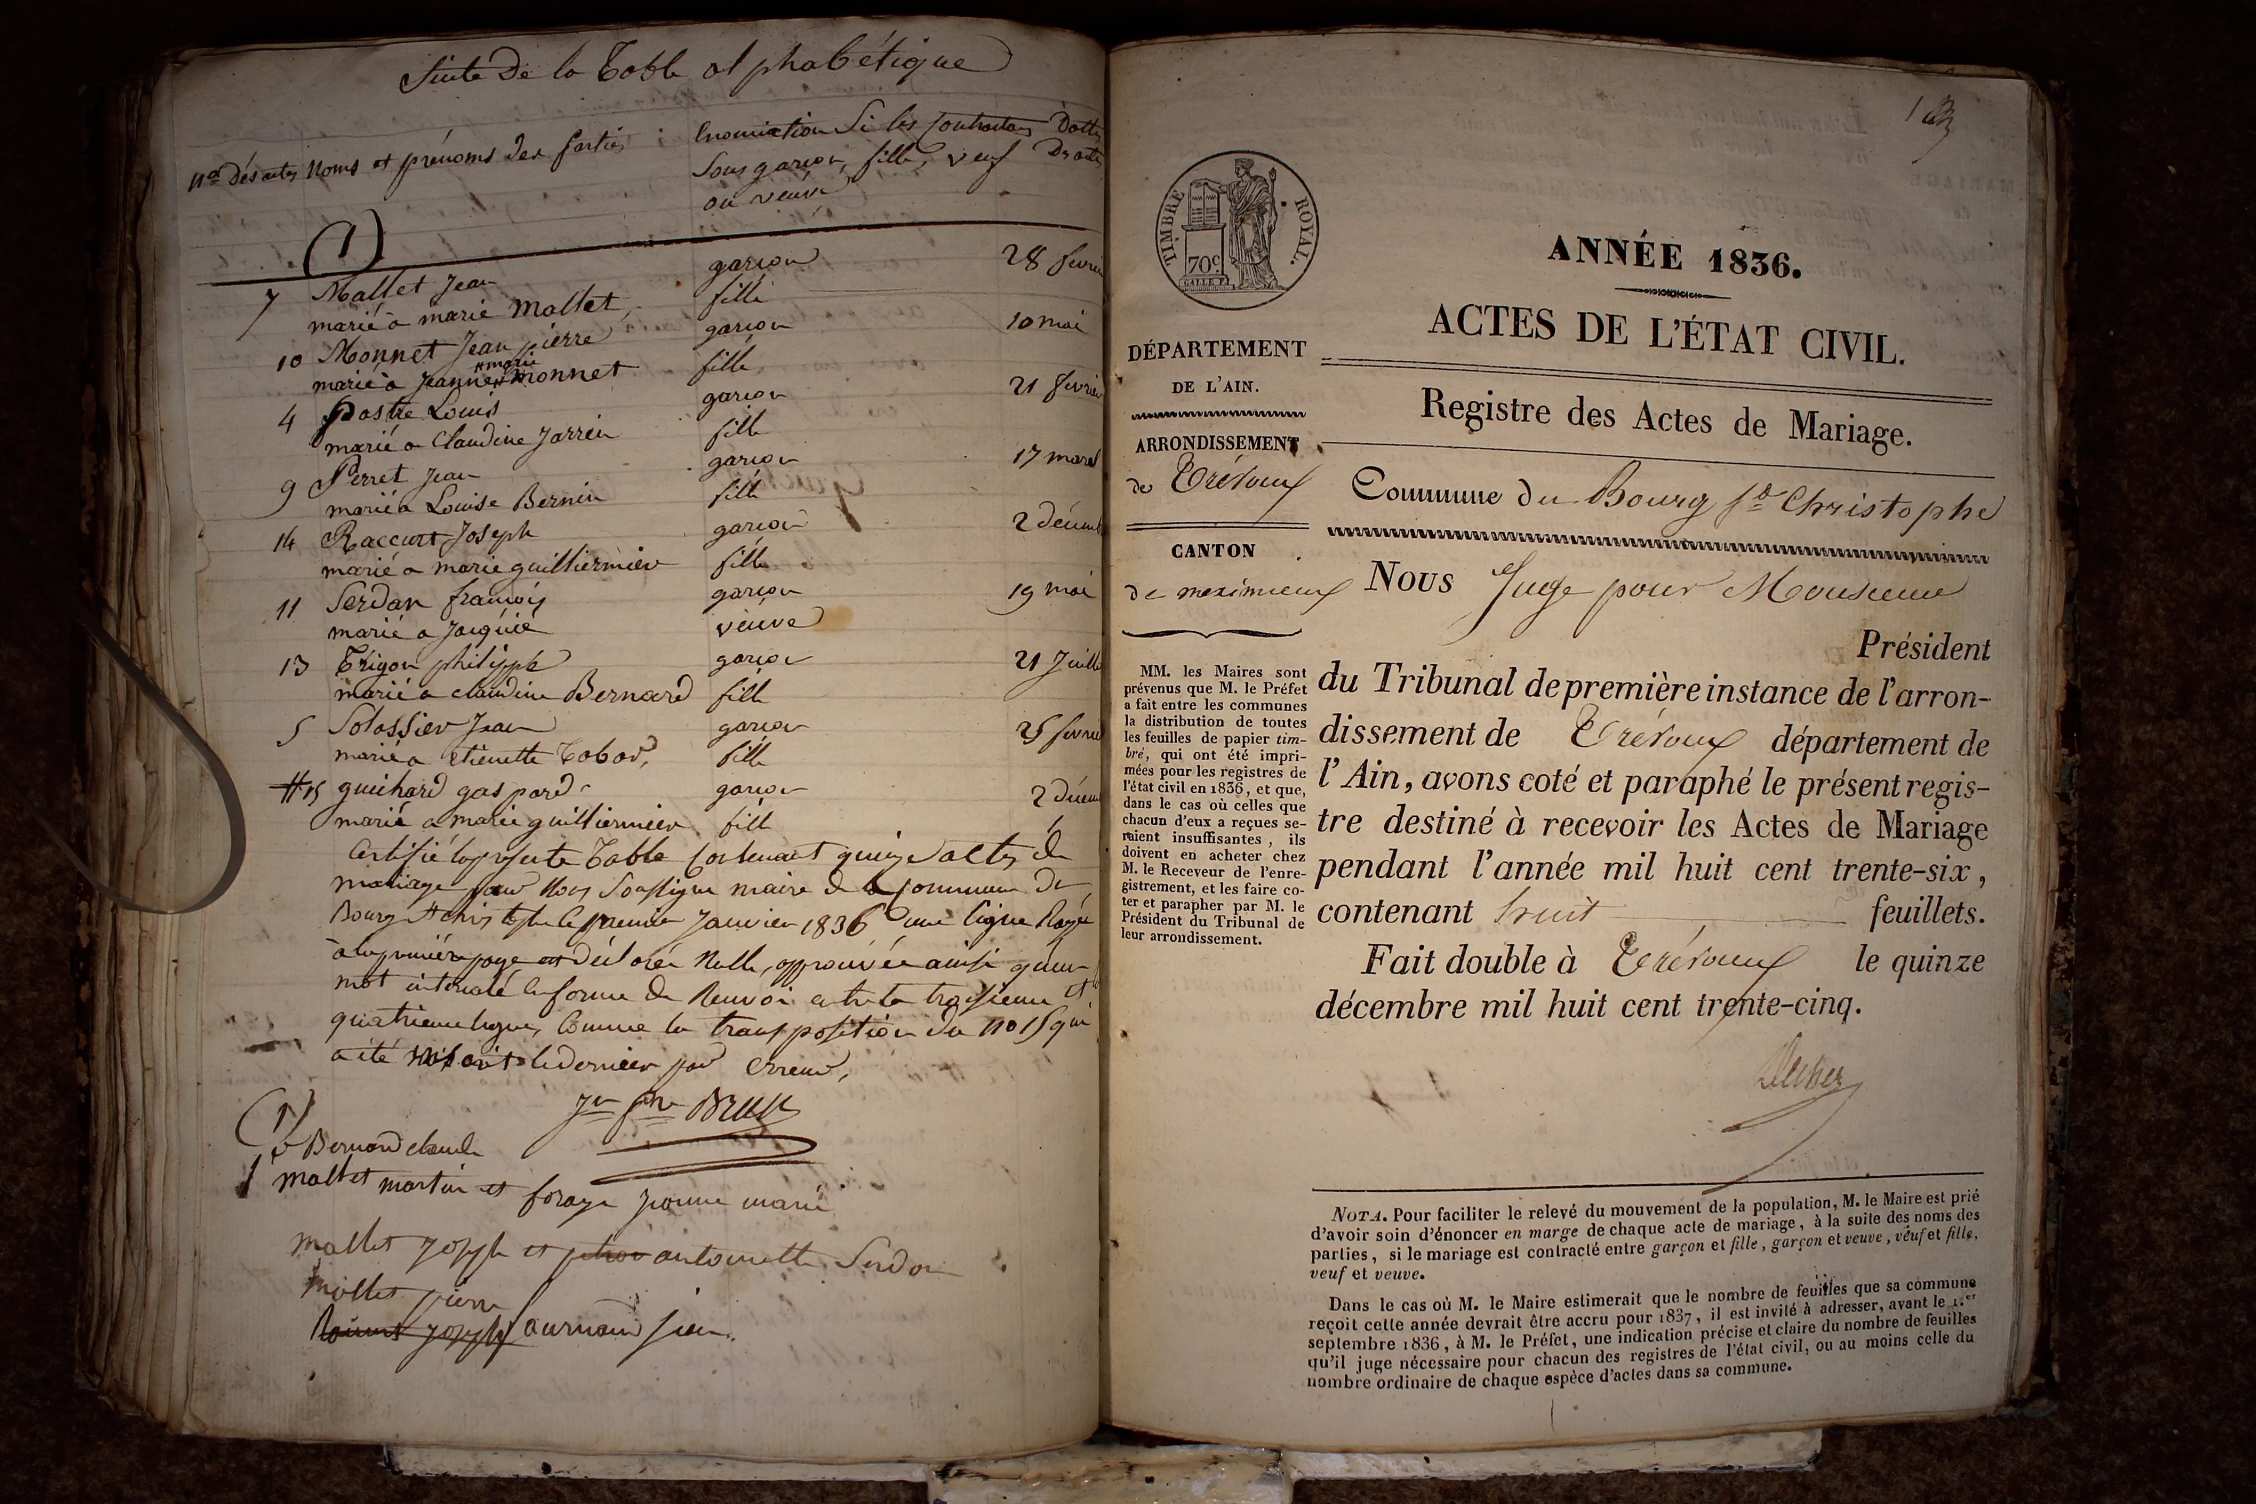 Suite de la Table alphabétique
nos des actes Noms et prénoms des parties Enonciation Si les Contractans Dattes
Sont garçon, fille, veuf Des actes
ou veuve
(1)
7 Mallet Jean garçon 28 fevrier
marié à marie Mallet, fille
10 Monnet Jean pierre garçon 10 mai
marié à Jeanne #marie# monnet fille
4 Postre Louis garçon 21 fevrier
marié a Claudine Jarrein fille
9 Perret Jean garçon 17 mars
marié a Louise Bernin fille
14 Raccurt Joseph garçon 2 décemb
marié a marie guilliermier fille
11 Serdan françois garçon 19 mai
marié a Jacquié veuve
13 Trigon philippe garçon 21 Juillet
marié a claudine Bernard fille
5 Solassier Jean garçon 25 fevrier
marié a etienette Tobard, fille
#15 guichard gaspard garçon 2 décem
marié a marie guilliermier fille
Certifié la présente Table Contenant quinze actes de
mariage par Nous Soussigné maire de la Commune de
Bourg St christophe le premier Janvier 1836 une ligne Rayée
à la première page est déclarée Nulle, approuvée ainsi qu'un
mot intercalé en forme de Renvoi entre la troisieme et
quatrieme lignes, Comme la transposition du no 15 qui
a été le dernier par Erreur,
(1)
Bernard claude
1 mallet martin et jeanne marie
mallet Joseph et antoinette Serdan
mallet pierre
Joseph
1
TIMBRE ROYAL.
70c.
GALLE F.
DÉPARTEMENT
DE L'AIN.
ARRONDISSEMENT
de Trévoux
CANTON
de meximieux
MM. les Maires sont
prévenus que M. le Préfet
a fait entre les communes
la distribution de toutes
les feuilles de papier tim-
bré, qui ont été impri-
mées pour les registres de
l'état civil en 1836, et que,
dans le cas où celles que
chacun d'eux a reçues se-
raient insuffisantes, ils
doivent en acheter chez
M. le Receveur de l'enre-
gistrement, et les faire co-
ter et parapher par M. le
Président du Tribunal de
leur arrondissement.
ANNÉE 1836.
ACTES DE L'ÉTAT CIVIL.
Registre des Actes de Mariage.
Commune du Bourg St Christophe
Nous Juge pour Monsieur
Président
du Tribunal de première instance de l'arron-
dissement de Trévoux département de
l'Ain, avons coté et paraphé le présent regis-
tre destiné à recevoir les Actes de Mariage
pendant l'année mil huit cent trente-six,
contenant huit feuillets.
Fait double à Trévoux le quinze
décembre mil huit cent trente-cinq.
NOTA. Pour faciliter le relevé du mouvement de la population, M. le Maire est prié
d'avoir soin d'énoncer en marge de chaque acte de mariage, à la suite des noms des
parties, si le mariage est contracté entre garçon et fille, garçon et veuve, veuf et fille,
veuf et veuve.
Dans le cas où M. le Maire estimerait que le nombre de feuilles que sa commune
reçoit cette année devrait être accru pour 1837, il est invité à adresser, avant le 1.er
septembre 1836, à M. le Préfet, une indication précise et claire du nombre de feuilles
qu'il juge nécessaire pour chacun des registres de l'état civil, ou au moins celle du
nombre ordinaire de chaque espèce d'actes dans sa commune.